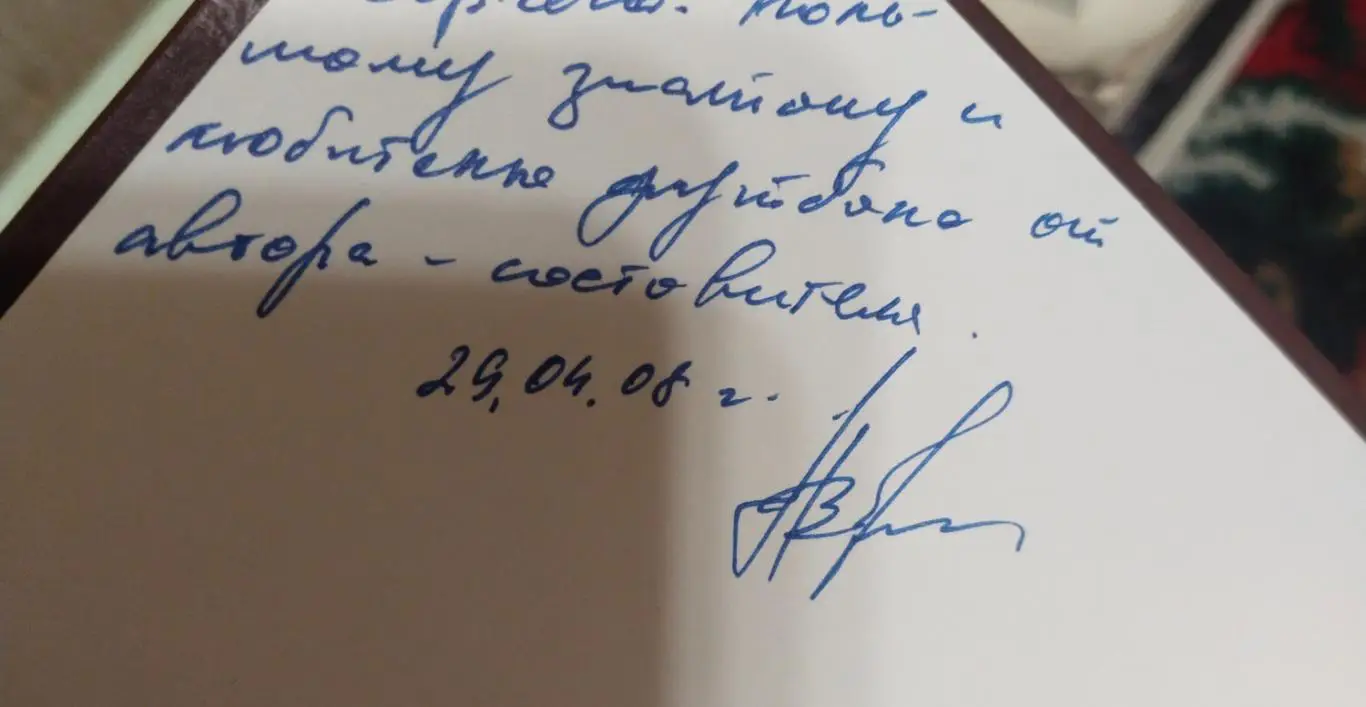 Боль-
шому знатоку и
любителю футбола от
автора - составителя.
29.04.08 г.